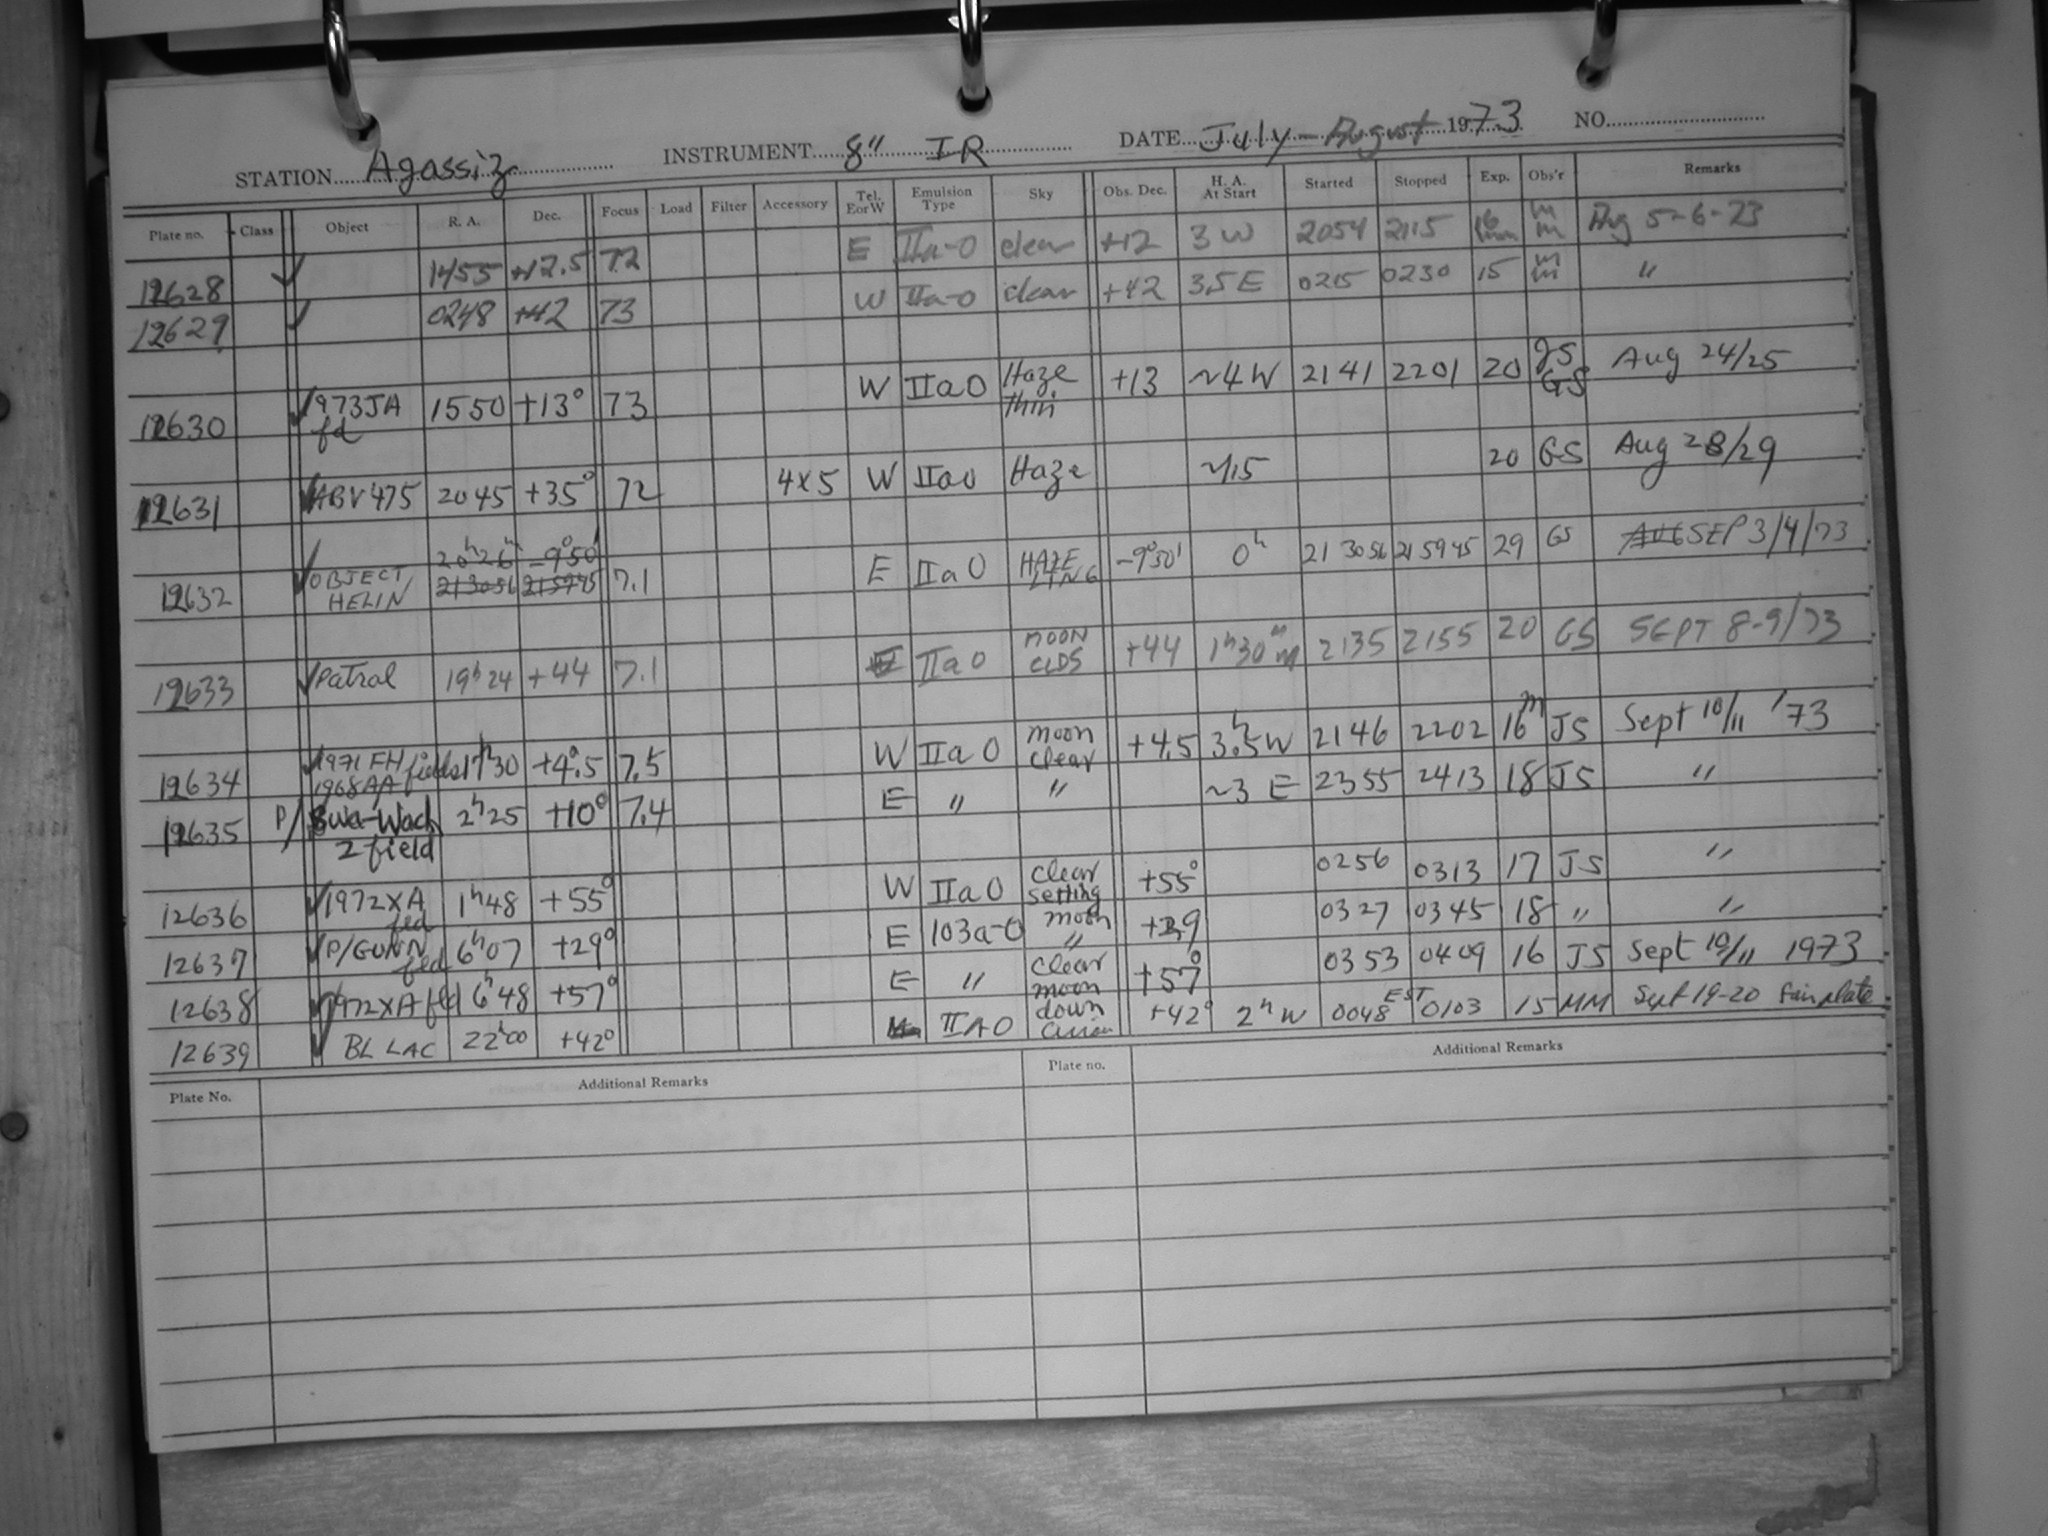 STATION Agassiz INSTRUMENT 8" IR DATE July-August 1973 NO.
Plate no. Class Object R. A. Dec. Focus Load Filter Accessory Tel. E or W Emulsion Type Sky Obs. Dec. H. A. At Start Started Stopped Exp. Obs'r Remarks
12628 ✓ 1455 +12.5 72 E IIa-O clear +12 3 W 2054 2115 16 min mm Aug 5-6-73
12629 ✓ 0248 +42 73 W IIa-O clear +42 3.5 E 0215 0230 15 mm "
12630 ✓ 1973JA fd 1550 +13° 73 W IIaO Haze thin +13 ~4 W 2141 2201 20 JS GS Aug 24/25
12631 ✓ ABV475 2045 +35° 72 4x5 W IIaO Haze ~1.5 20 GS Aug 28/29
20h26m -9°50'
12632 ✓ OBJECT HELIN 213056 215945 7.1 E IIaO HAZE LTNG -9°50' 0h 213056 215945 29 GS AUG SEP 3/4/73
12633 ✓ Patrol 19h24 +44 7.1 IIaO MOON CLDS +44 1h30m 2135 2155 20 GS SEPT 8-9/73
12634 ✓ 1971 FH fields 1968AA 17h30 +4°.5 7.5 W IIaO moon clear +4.5 3.h5W 2146 2202 16m JS Sept 10/11 '73
12635 P/ Swa-Wach 2 field 2h25 +10° 7.4 E " " ~3 E 2355 2413 18 JS "
12636 ✓ 1972XA fld 1h48 +55° W IIaO clear setting moon +55° 0256 0313 17 JS "
12637 ✓ P/GUNN fld 6h07 +29° E 103a-O " +29 0327 0345 18 " "
12638 ✓ 1972XA fld 6h48 +57° E " clear moon down +57° 0353 0409 16 JS Sept 10/11 1973
12639 ✓ BL LAC 22h00 +42° IIAO +42° 2h W 0048 EST 0103 15 MM Sept 19-20 Fair plate
Plate No. Additional Remarks Plate no. Additional Remarks